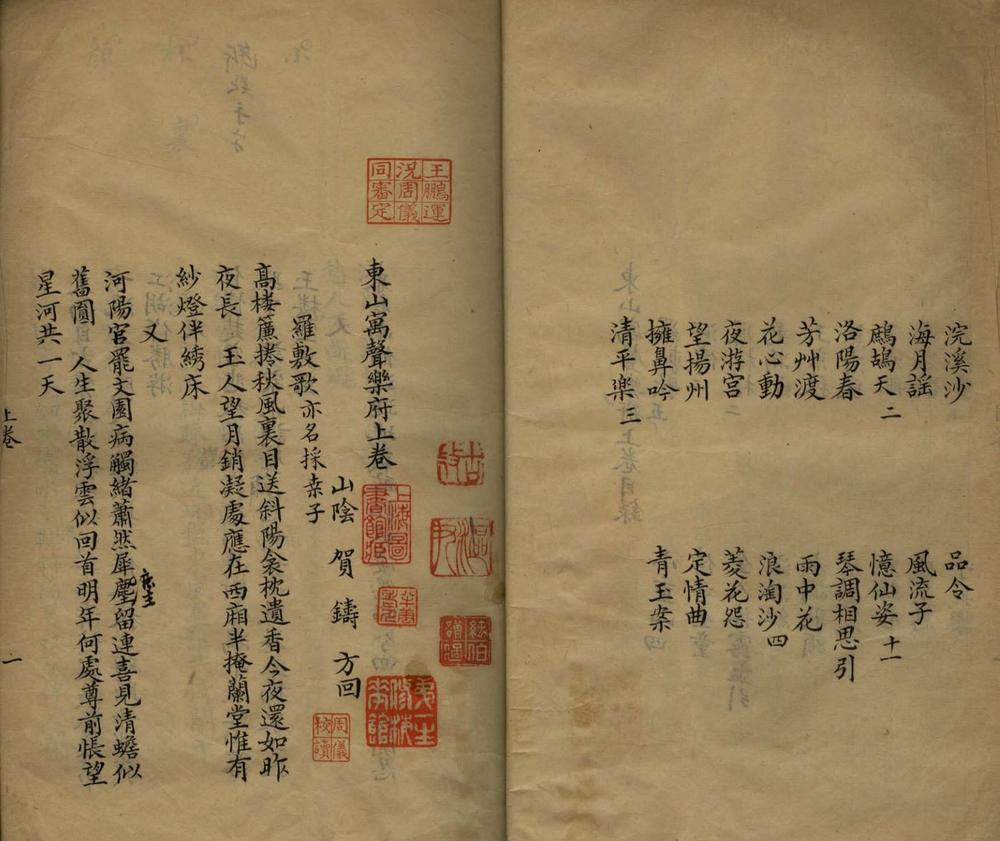 浣溪沙
海月謡
鷓鴣天二
洛陽春
芳艸渡
花心動
夜游宮
望揚州
擁鼻吟
清平樂三
品令
風流子
憶仙姿十一
琴調相思引
雨中花
浪淘沙四
菱花怨
定情曲
青玉案
王鵬運
況周儀
同審定
東山寓聲樂府上卷
上海圖
書館臧
山陰賀鑄方回
周儀
校讀
羅敷歌亦名採桒子
高楼簾捲秋風裏目送斜陽衾枕遺香今夜還如昨
夜長 玉人望月銷凝處應在西廂半掩蘭堂惟有
紗燈伴綉床
又
河陽官罷文園病觸緒蕭然犀麈留連喜見清蟾似
舊圓 人生聚散浮雲似回首明年何處尊前悵望
星河共一天
上卷
一